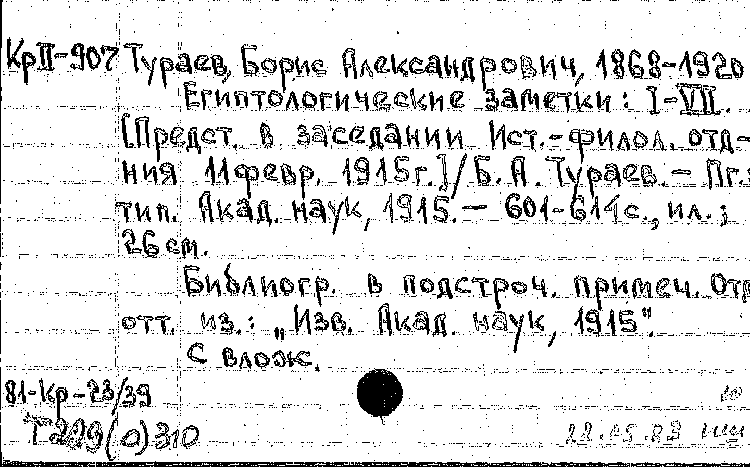 КрII-907 Тураев, Борис Александрович, 1868-1920
Египтологические заметки: I-VII.
[Предст. в заседании Ист.-филол. отд-
ния 11 февр. 1915г.]/Б.А. Тураев.- Пг.:
тип. Акад. наук, 1915.- 601-614с., ил.;
26см.
Библиогр. в подстроч. примеч. Отд
отт. из.: „Изв. Акад. наук, 1915".
С влож.
81-Кр-23/39
T299(0)310